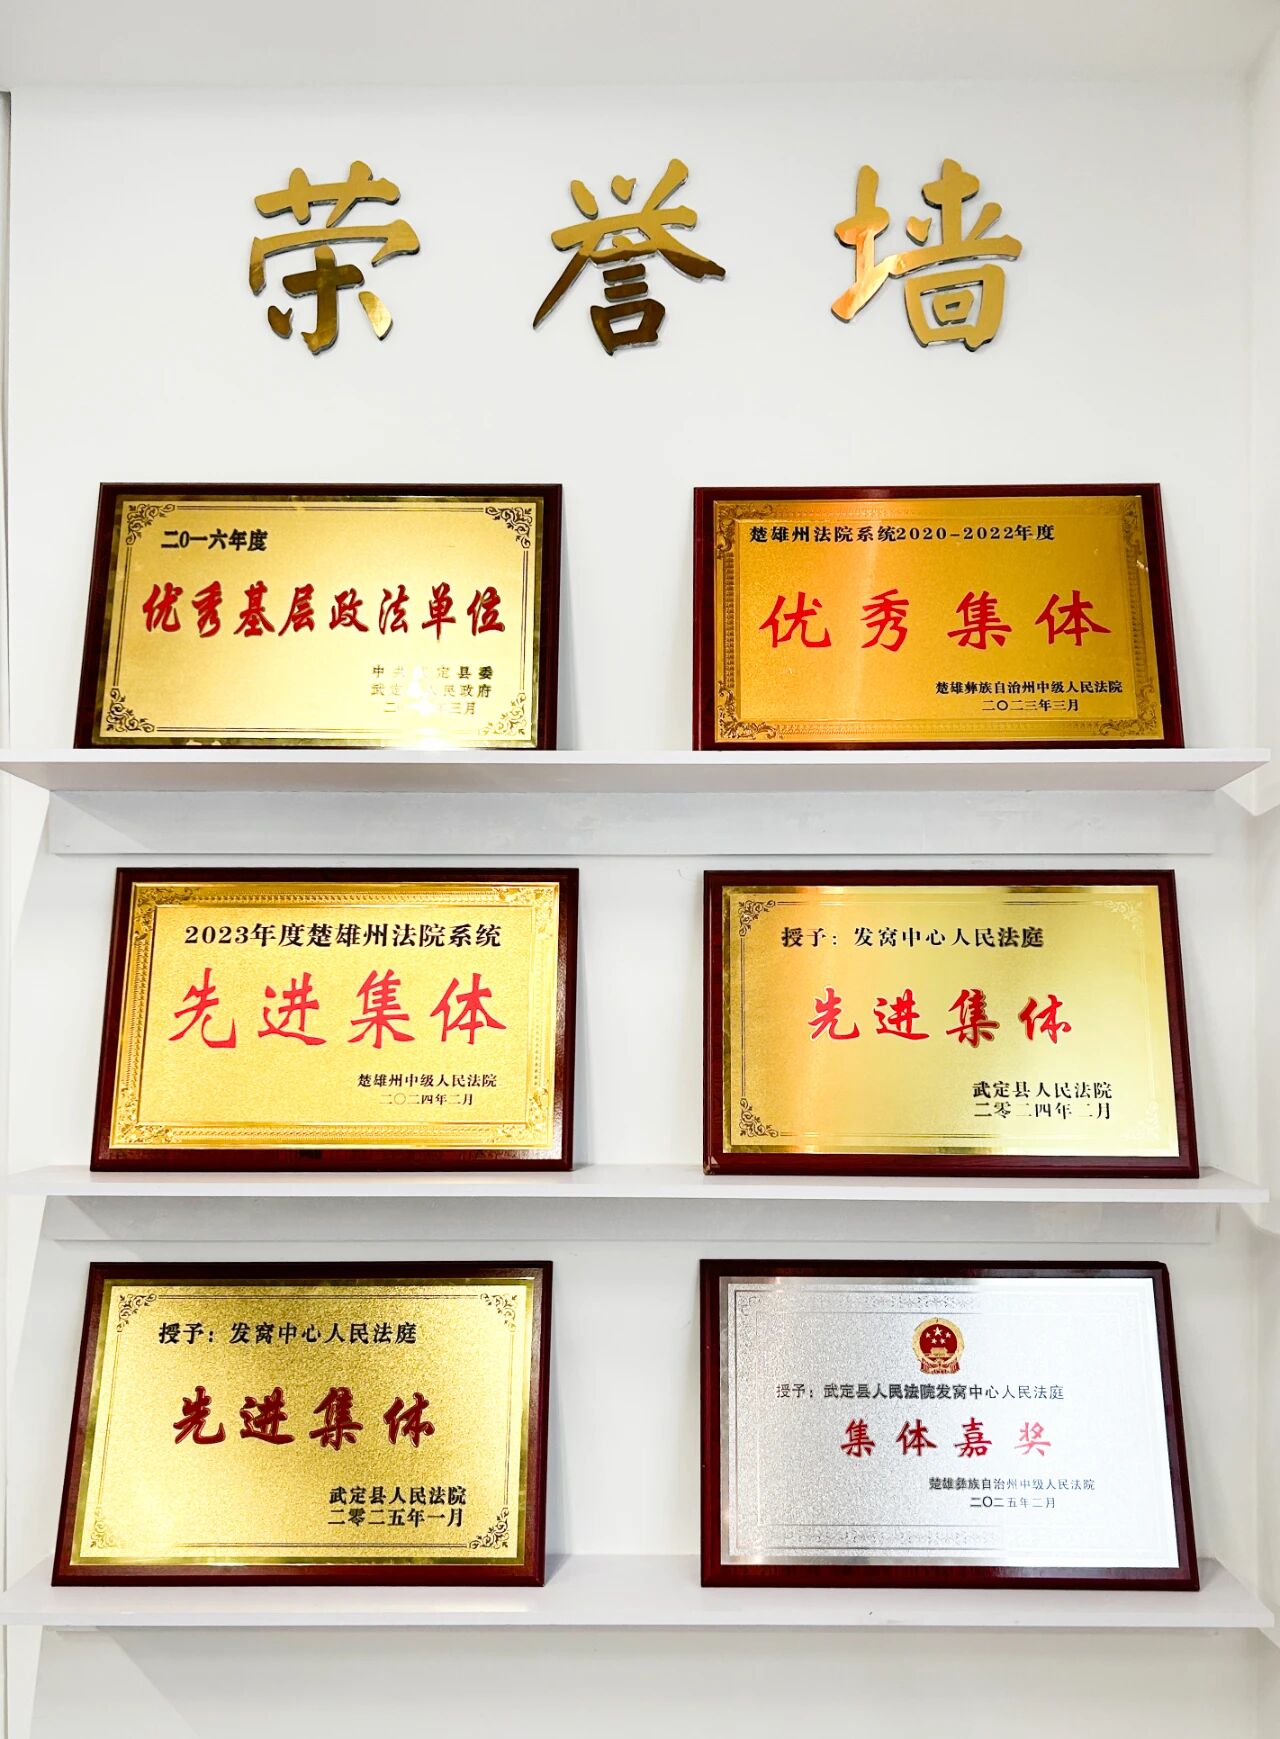 荣誉墙
二0一六年度
优秀基层政法单位
中共 定县委
武定 人民政府
二 年三月
楚雄州法院系统2020-2022年度
优秀集体
楚雄彝族自治州中级人民法院
二〇二三年三月
2023年度楚雄州法院系统
先进集体
楚雄州中级人民法院
二〇二四年二月
授予：发窝中心人民法庭
先进集体
武定县人民法院
二零二四年二月
授予：发窝中心人民法庭
先进集体
武定县人民法院
二零二五年一月
授予：武定县人民法院发窝中心人民法庭
集体嘉奖
楚雄彝族自治州中级人民法院
二〇二五年二月